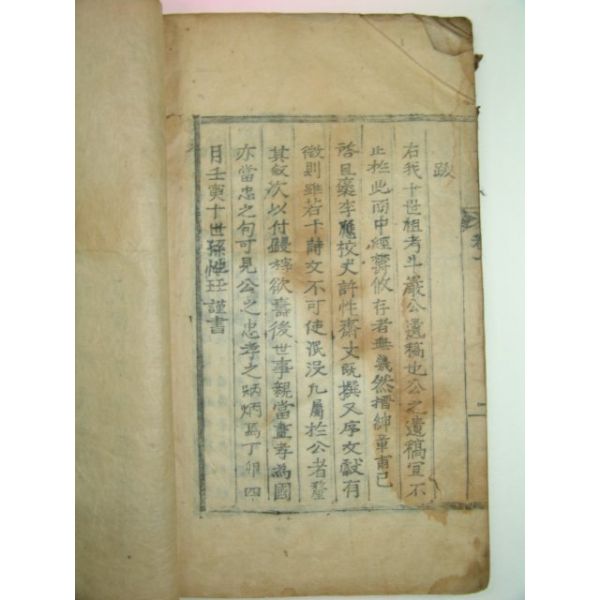 跋
右我十世祖考斗巖公遺稿也公之遺稿宜不
止於此而中經欝攸存者無幾然搢紳章甫已
啓且褒李校丈許性齋丈旣撰又序文獻有
徵則雖若干詩文不可使泯沒凡屬於公者釐
其敍次以付鋟梓欲壽後世事親當盡孝為國
亦當忠之句可見公之忠孝之炳炳焉丁卯四
月壬寅十世孫 謹書